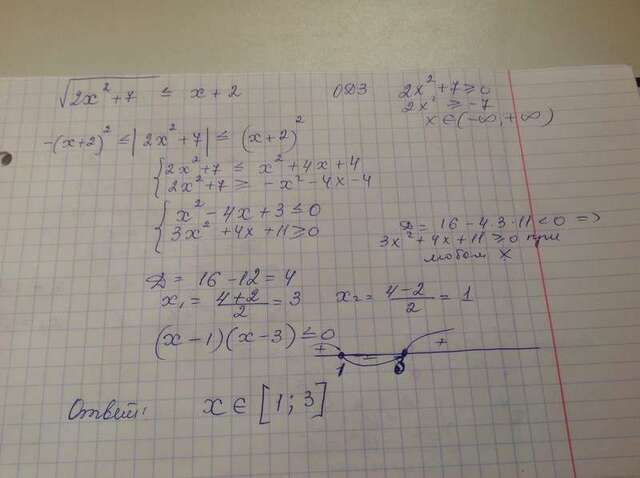 √(2x²+7) ≤ x+2
ОДЗ 2x²+7≥0
2x² ≥ -7
x∈(-∞,+∞)
-(x+2)² ≤ |2x²+7| ≤ (x+2)²
{2x²+7 ≤ x²+4x+4
2x²+7 ≥ -x²-4x-4
{x²-4x+3≤0
3x²+4x+11≥0
Д= 16-4·3·11<0 =>
3x²+4x+11≥0 при
любом x
Д= 16-12=4
x₁= (4+2)/2 = 3 x₂= (4-2)/2 = 1
(x-1)(x-3)≤0
+ - +
1 3
Ответ: x∈[1;3]